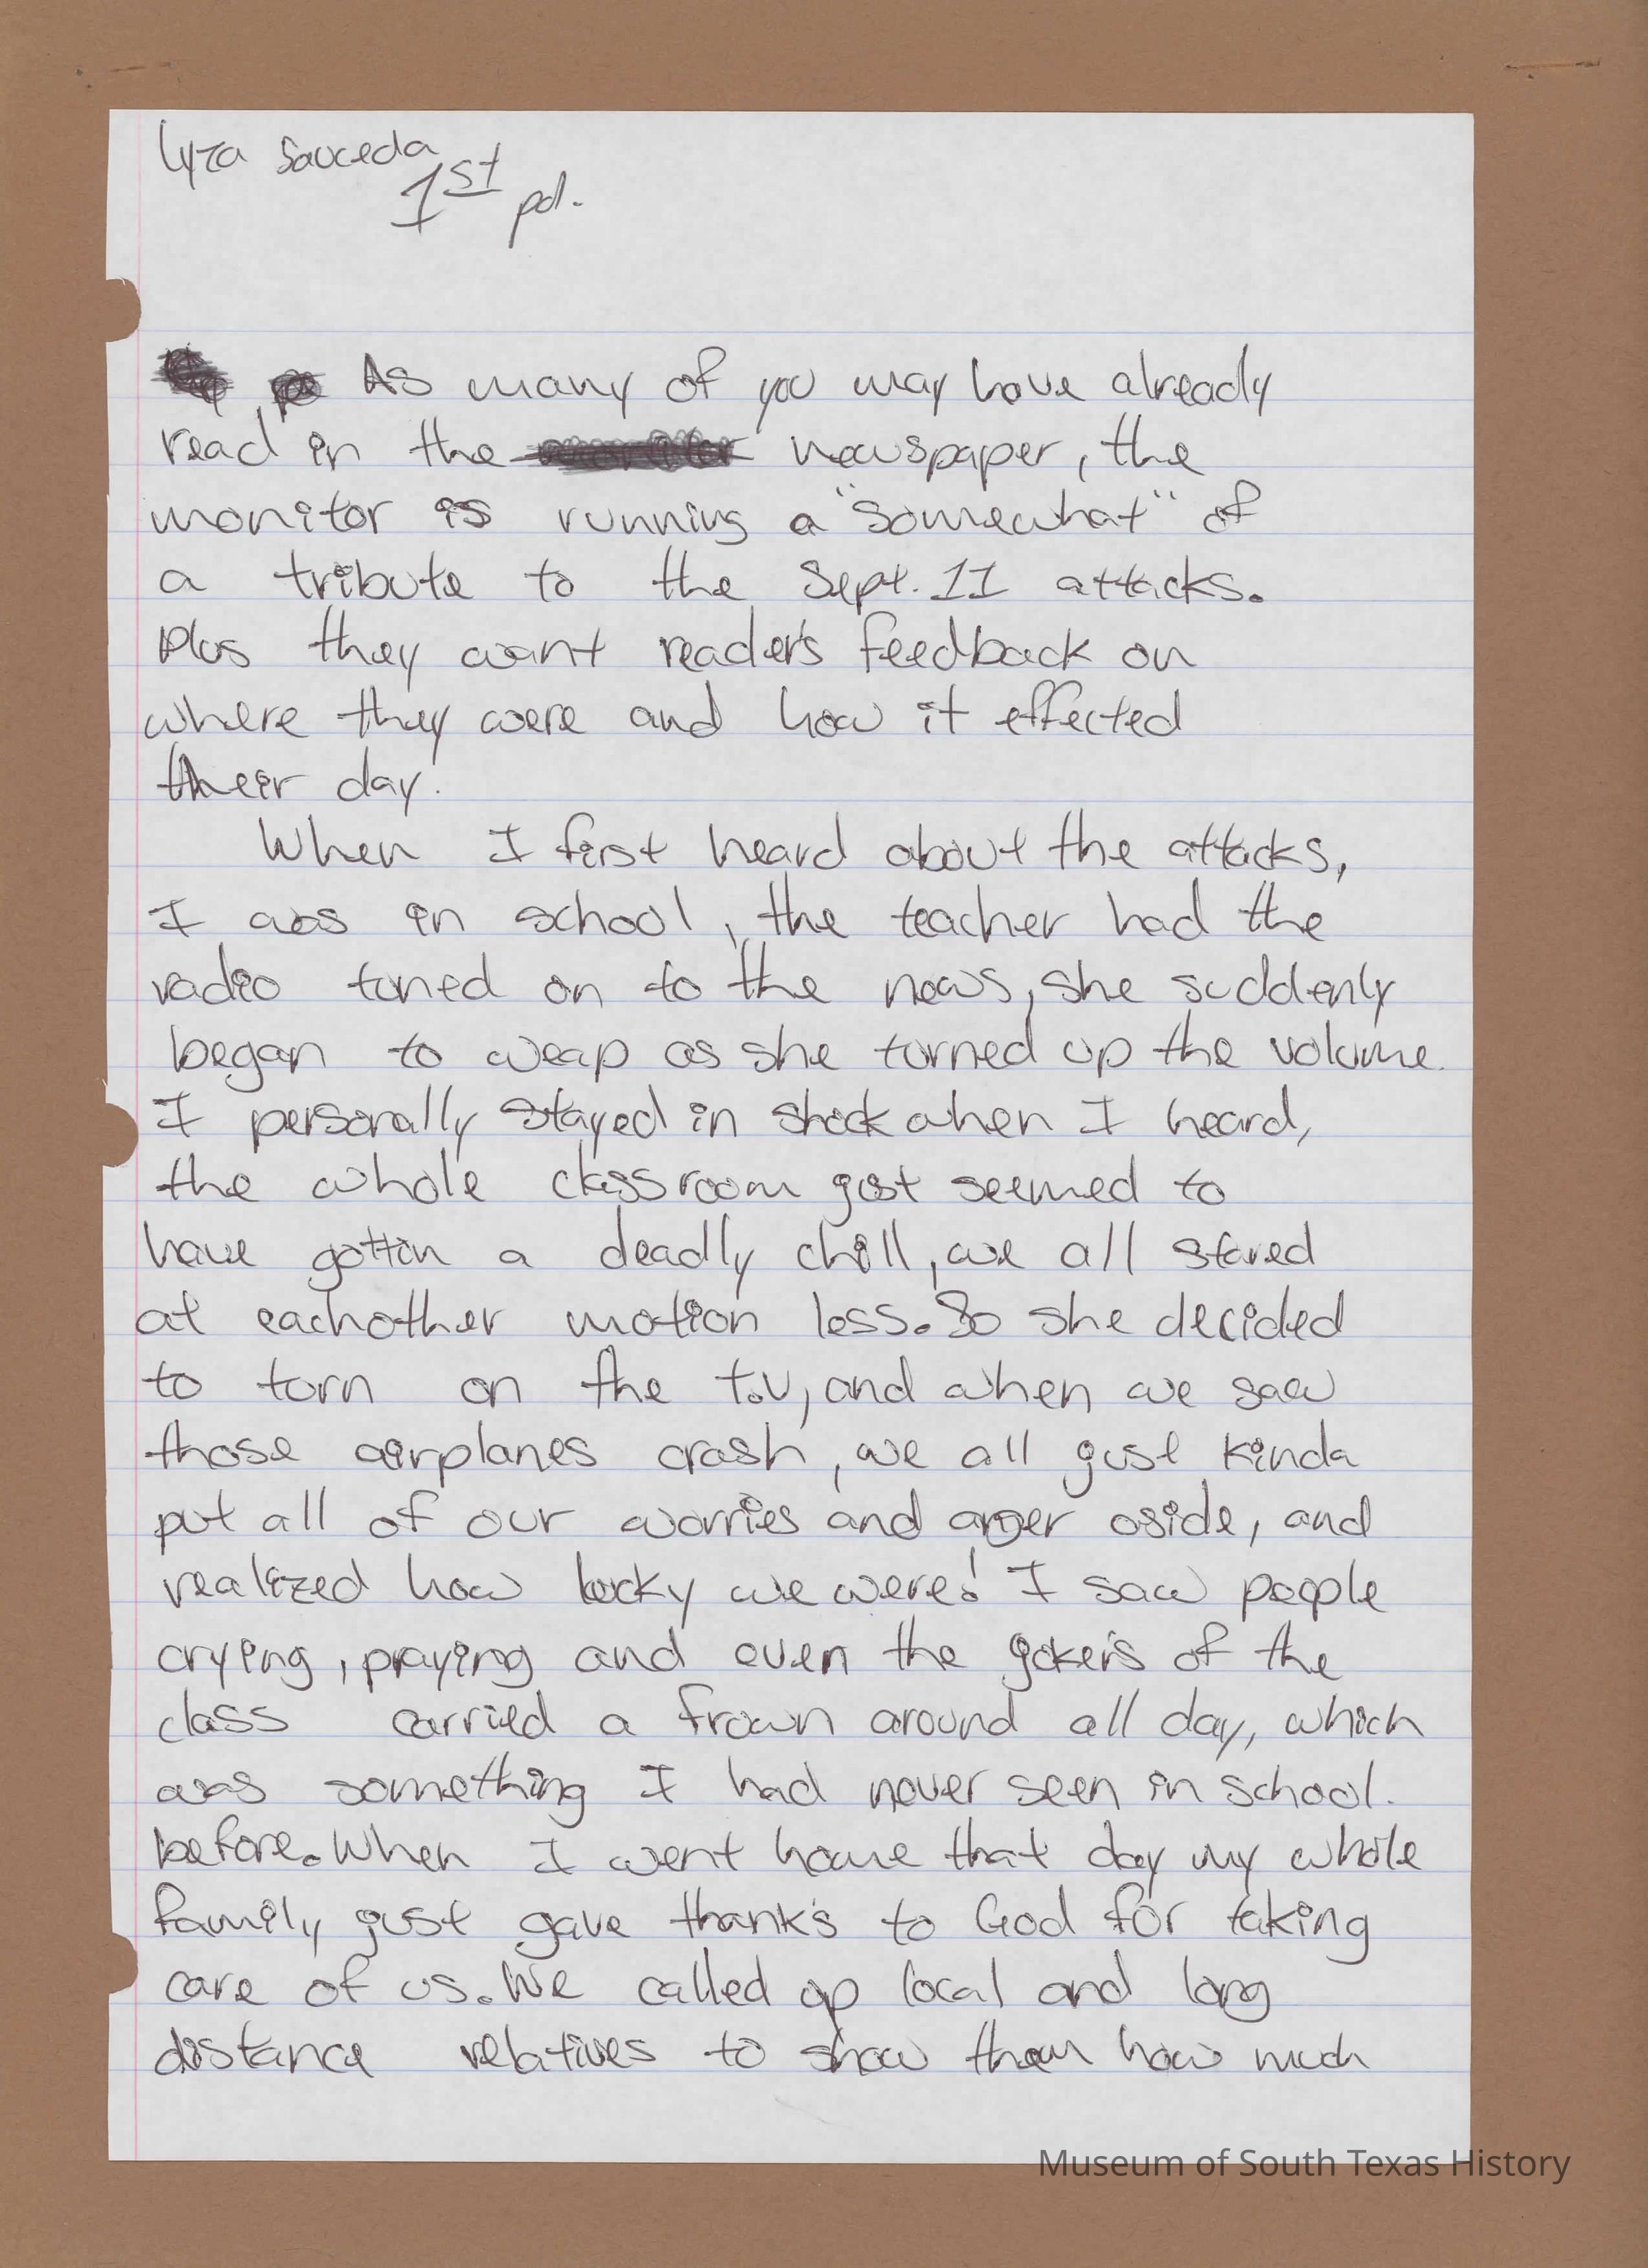 Lyza Sauceda
1st pd.
As many of you may have already
read in the newspaper, the
monitor is running a "somewhat" of
a tribute to the Sept. 11 attacks.
Plus they want reader's feedback on
where they were and how it effected
their day.
When I first heard about the attacks,
I was in school, the teacher had the
radio tuned on to the news, she suddenly
began to weap as she turned up the volume.
I personally stayed in shock when I heard,
the whole classroom just seemed to
have gottin a deadly chill, we all stared
at eachother motion less. So she decided
to turn on the t.v, and when we saw
those airplanes crash, we all just kinda
put all of our worries and anger aside, and
realized how lucky we were! I saw people
crying, praying and even the joker's of the
class carried a frown around all day, which
was something I had never seen in school.
before. When I went home that day my whole
family just gave thank's to God for taking
care of us. We called up local and long
distance relatives to show them how much
Museum of South Texas History